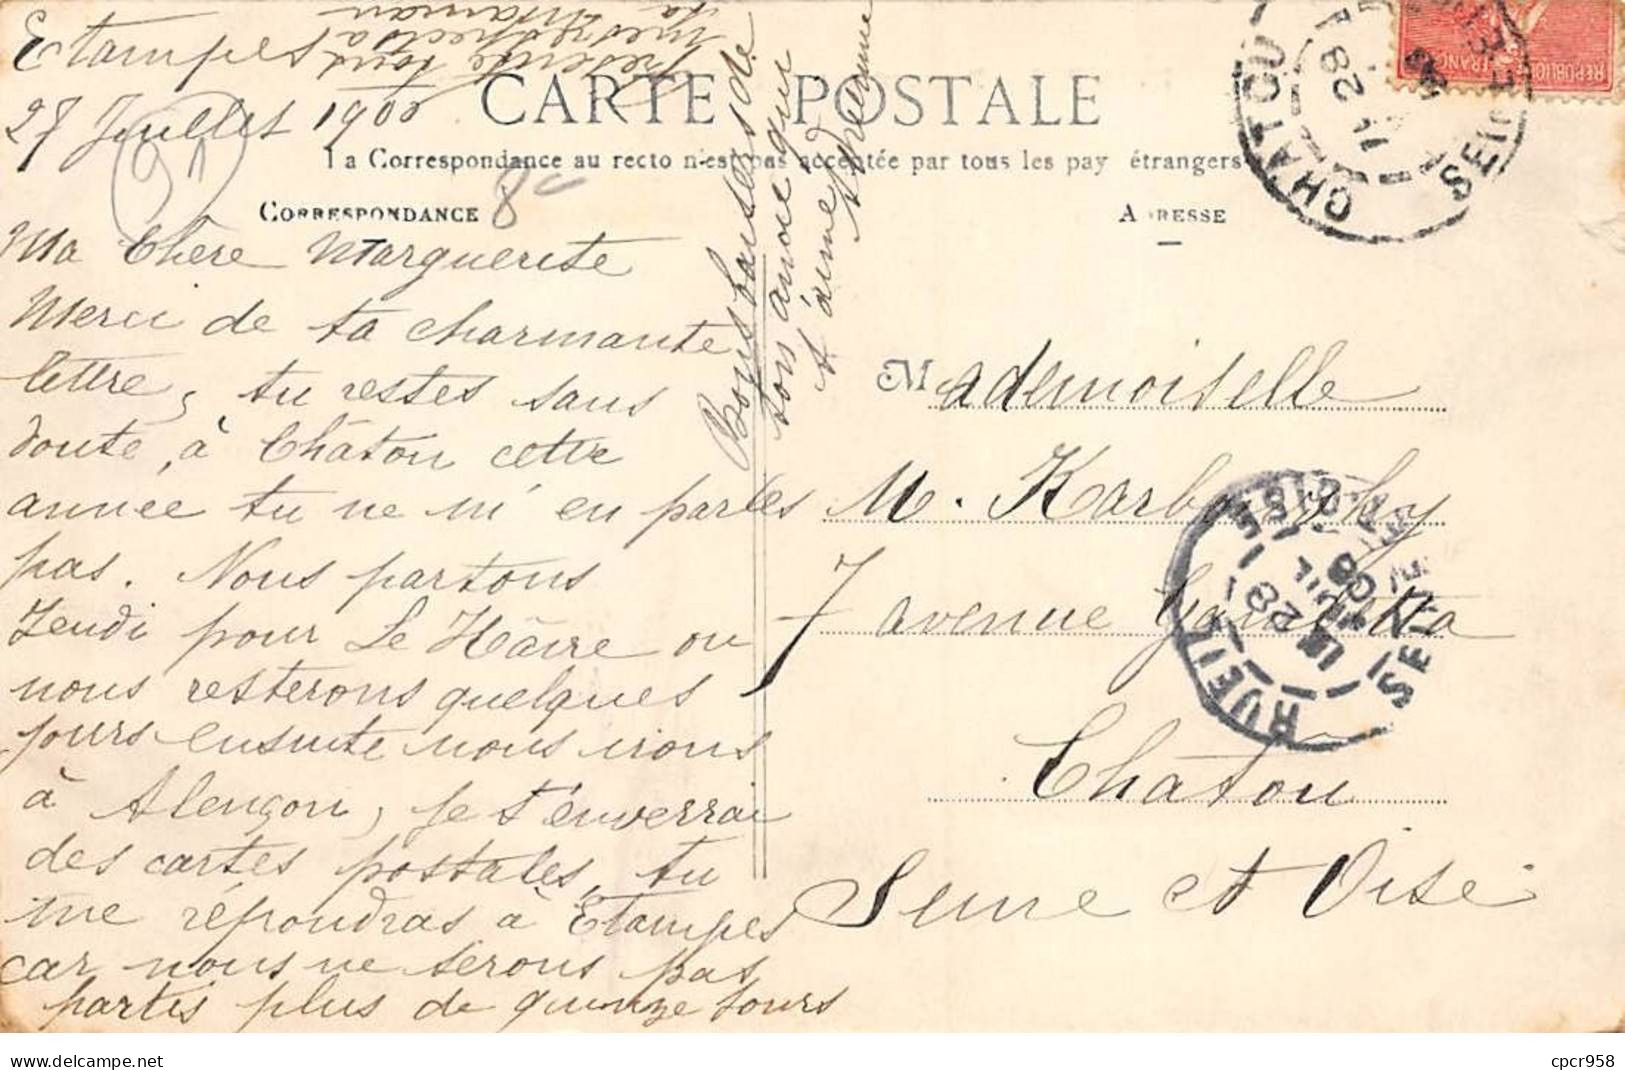 Etampes
27 Juillet 190
Ma Chère Marguerite
Merci de ta charmante
lettre, tu restes sans
doute, à Châtou cette
année tu ne m'en parles
pas. Nous partons
Jeudi pour Le Hâvre ou
nous resterons quelques
jours ensuite nous irons
à Alençon, je t'enverrai
des cartes postales, tu
me répondras à Etampes
car nous ne serons pas
partis plus de quinze jours
Présente tous
mes respects à
ta Maman
Bons baisers de
ton amie qui
t'aime
CARTE POSTALE
La Correspondance au recto n'est pas acceptée par tous les pays étrangers
CORRESPONDANCE
ADRESSE
91
8
Mademoiselle
M.
7 avenue Gambetta
Châtou
Seine et Oise
CHATOU
SEINE
28
REPUBLIQUE FRANC
RUEIL
SEINE
28
JUIL
08
cpcr958